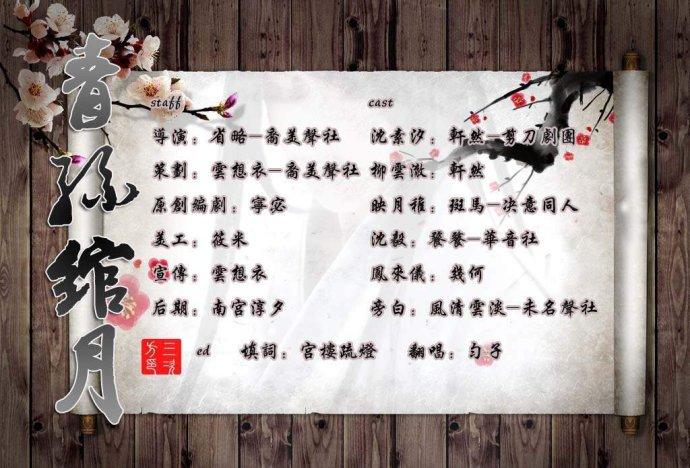 青絲綰月
staff
cast
導演：省略—喬美聲社
沈素汐：軒然—剪刀劇團
策劃：雲想衣—喬美聲社
柳雲澈：軒然
原創編劇：寧宓
映月稚：斑馬—决意同人
美工：筱米
沈毅：餮餮—華音社
宣傳：雲想衣
鳳來儀：幾何
后期：南宫淳夕
旁白：風清雲淡—未名聲社
ed 填詞：宫樓琉燈 翻唱：勻子